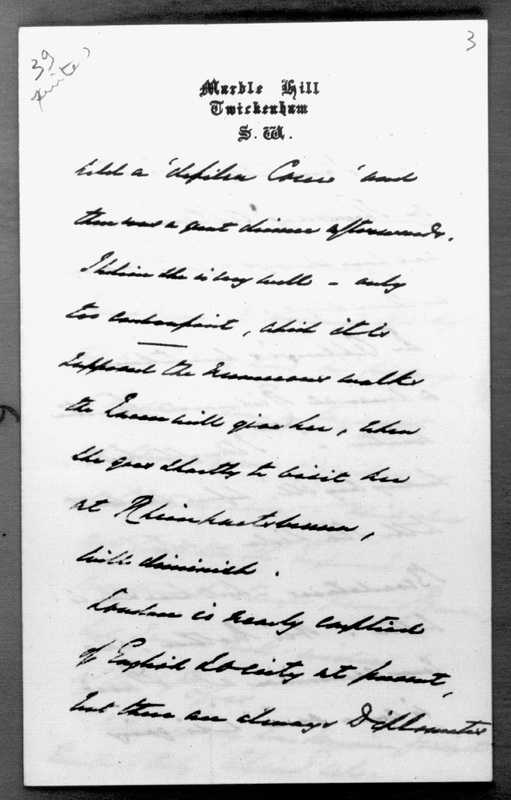 39
3
Marble Hill
Twickenham
S.W.
held a 'defilir Cour' and
there was a great dinner afterwards.
I believe she is very well - only
too embonpoint, which it is
supposed the numerous walks
the Queen will give her, when
she goes shortly to visit her
at Rheinhartsbrunn,
will diminish.
London is nearly emptied
of English Society at present,
but there are always Diplomates